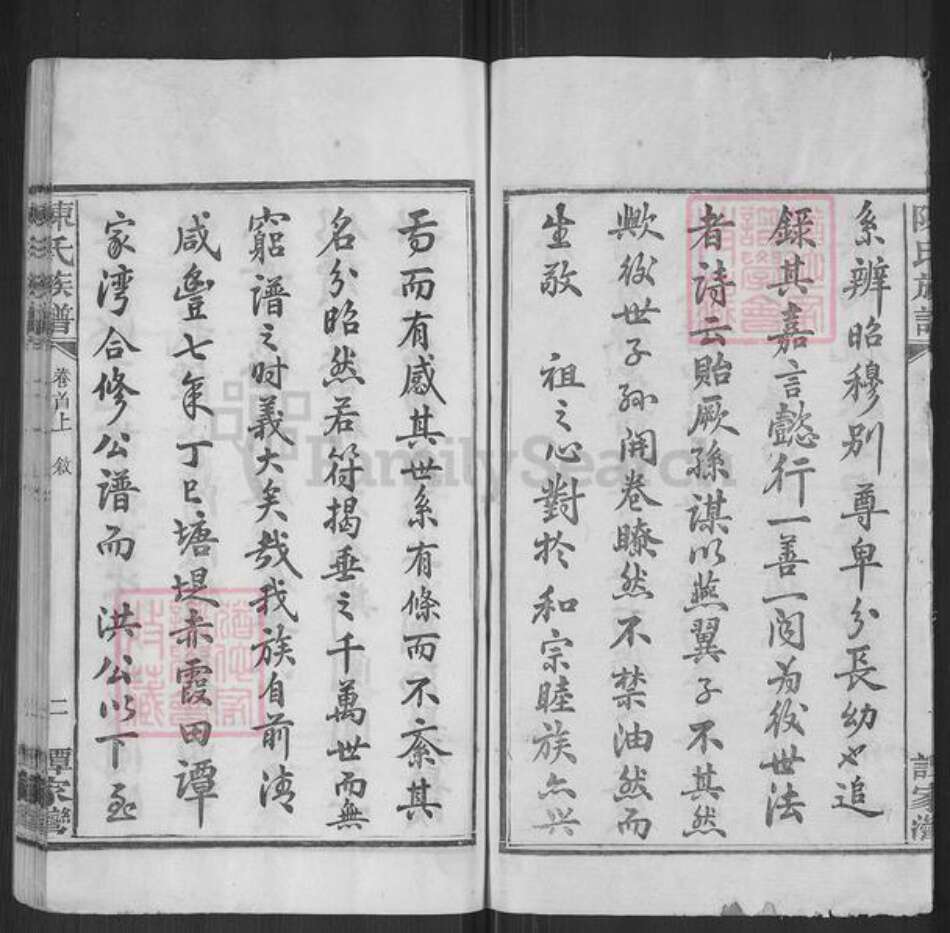 陳氏族譜
譚家灣
系辨昭穆别尊卑分長幼也追
録其嘉言懿行一善一闻为後世法
者詩云貽厥孫謀以燕翼子不其然
歟後世子孙開卷瞭然不禁油然而
生敬 祖之心對於和宗睦族亦兴
焉而有感其世系有條而不紊其
名分昭然若符揭垂之千萬世而無
窮譜之时義大矣哉我族自前清
咸豐七年丁巳塘堤赤霞田谭
家湾合修公譜而 洪公以下
陳氏族譜
卷首上 敘
二
譚家灣
FamilySearch